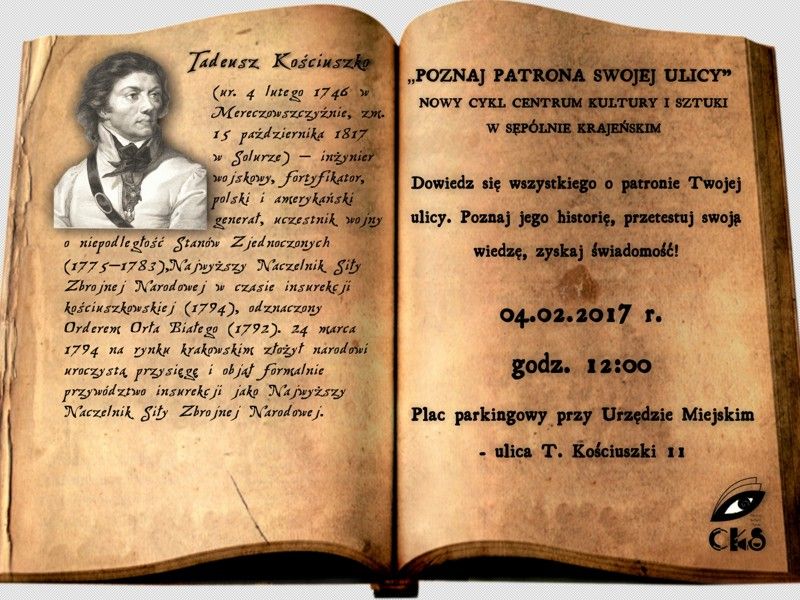 Tadeusz Kościuszko
(ur. 4 lutego 1746 w
Mereczowszczyźnie, zm.
15 października 1817
w Solurze) – inżynier
wojskowy, fortyfikator,
polski i amerykański
generał, uczestnik wojny
o niepodległość Stanów Zjednoczonych
(1775–1783),Najwyższy Naczelnik Siły
Zbrojnej Narodowej w czasie insurekcji
kościuszkowskiej (1794), odznaczony
Orderem Orła Białego (1792). 24 marca
1794 na rynku krakowskim złożył narodowi
uroczystą przysięgę i objął formalnie
przywództwo insurekcji jako Najwyższy
Naczelnik Siły Zbrojnej Narodowej.
„POZNAJ PATRONA SWOJEJ ULICY”
NOWY CYKL CENTRUM KULTURY I SZTUKI
W SĘPÓLNIE KRAJEŃSKIM
Dowiedz się wszystkiego o patronie Twojej
ulicy. Poznaj jego historię, przetestuj swoją
wiedzę, zyskaj świadomość!
04.02.2017 r.
godz. 12:00
Plac parkingowy przy Urzędzie Miejskim
- ulica T. Kościuszki 11
CKiS